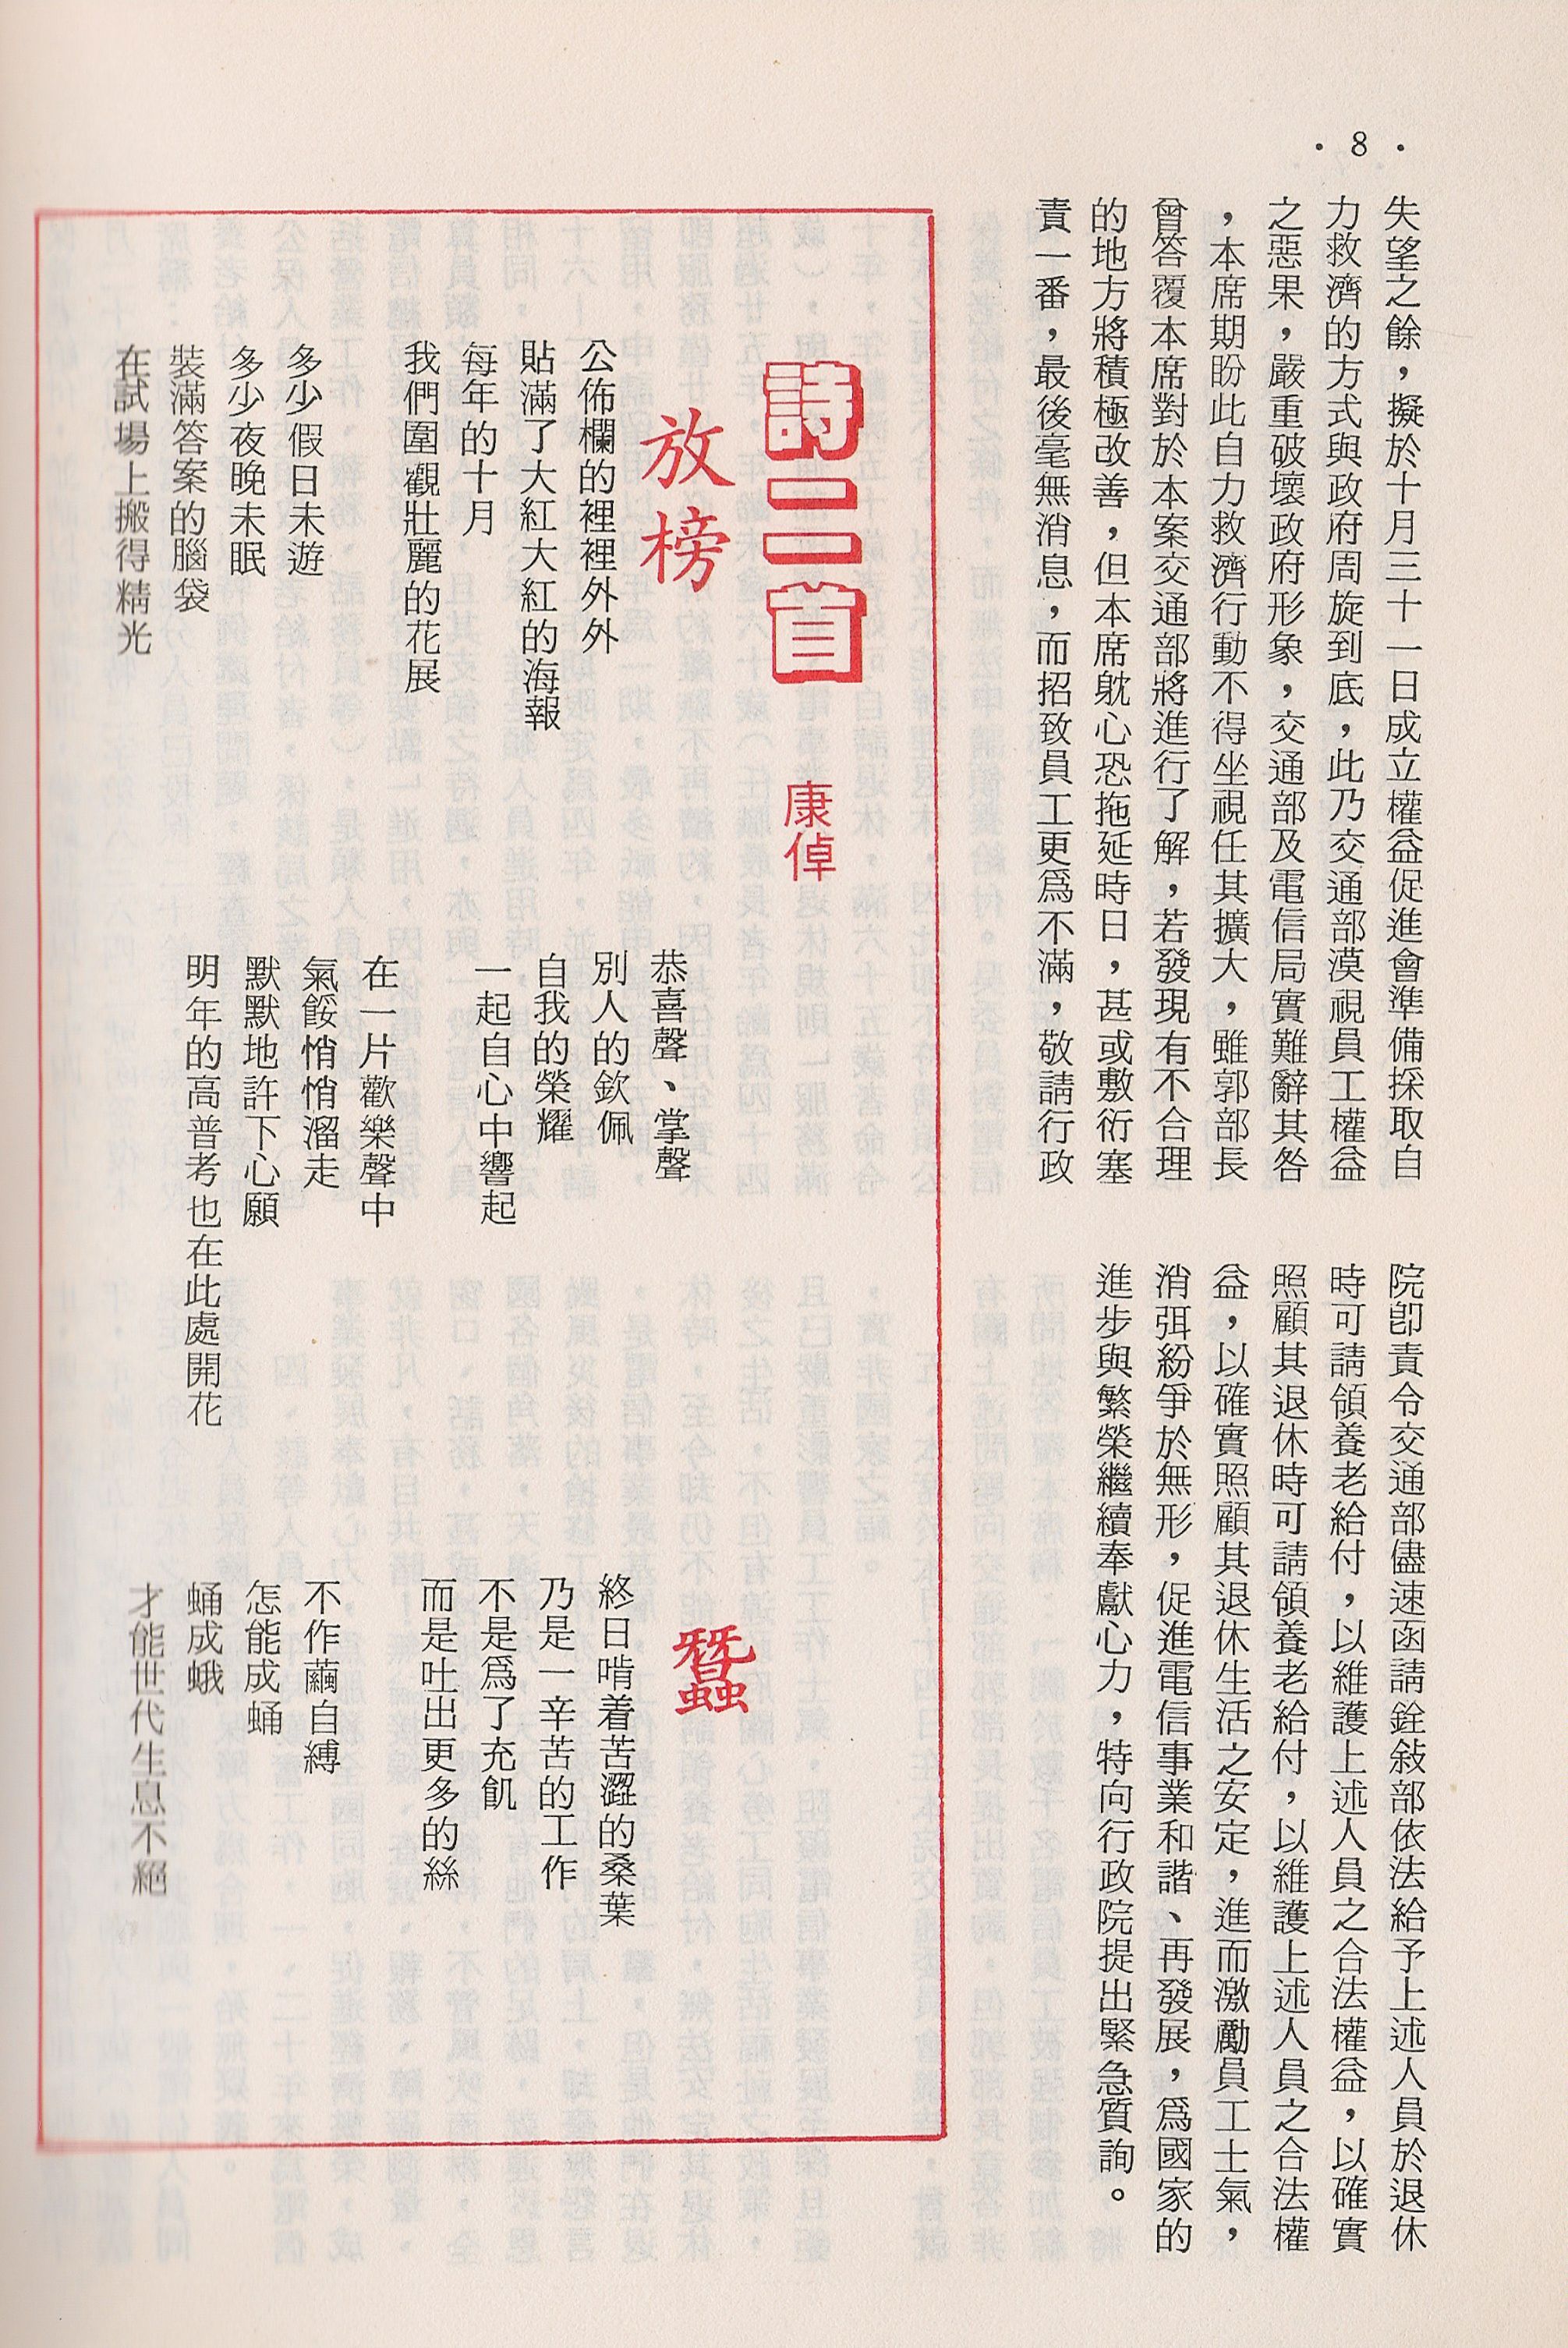 • 8 •
失望之餘，擬於十月三十一日成立權益促進會準備採取自
力救濟的方式與政府周旋到底，此乃交通部漠視員工權益
之惡果，嚴重破壞政府形象，交通部及電信局實難辭其咎
，本席期盼此自力救濟行動不得坐視任其擴大，雖郭部長
曾答覆本席對於本案交通部將進行了解，若發現有不合理
的地方將積極改善，但本席躭心恐拖延時日，甚或敷衍塞
責一番，最後毫無消息，而招致員工更爲不滿，敬請行政
院卽責令交通部儘速函請銓敍部依法給予上述人員於退休
時可請領養老給付，以維護上述人員之合法權益，以確實
照顧其退休時可請領養老給付，以維護上述人員之合法權
益，以確實照顧其退休生活之安定，進而激勵員工士氣，
消弭紛爭於無形，促進電信事業和諧、再發展，爲國家的
進步與繁榮繼續奉獻心力，特向行政院提出緊急質詢。
詩二首
康倬
放榜
公佈欄的裡裡外外
貼滿了大紅大紅的海報
每年的十月
我們圍觀壯麗的花展
多少假日未遊
多少夜晚未眠
裝滿答案的腦袋
在試場上搬得精光
恭喜聲、掌聲
別人的欽佩
自我的榮耀
一起自心中響起
在一片歡樂聲中
氣餒悄悄溜走
默默地許下心願
明年的高普考也在此處開花
蠶
終日啃着苦澀的桑葉
乃是一辛苦的工作
不是爲了充飢
而是吐出更多的絲
不作繭自縛
怎能成蛹
蛹成蛾
才能世代生息不絕